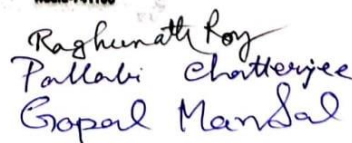 Raghunath Roy
Pallabi Chatterjee
Gopal Mandal